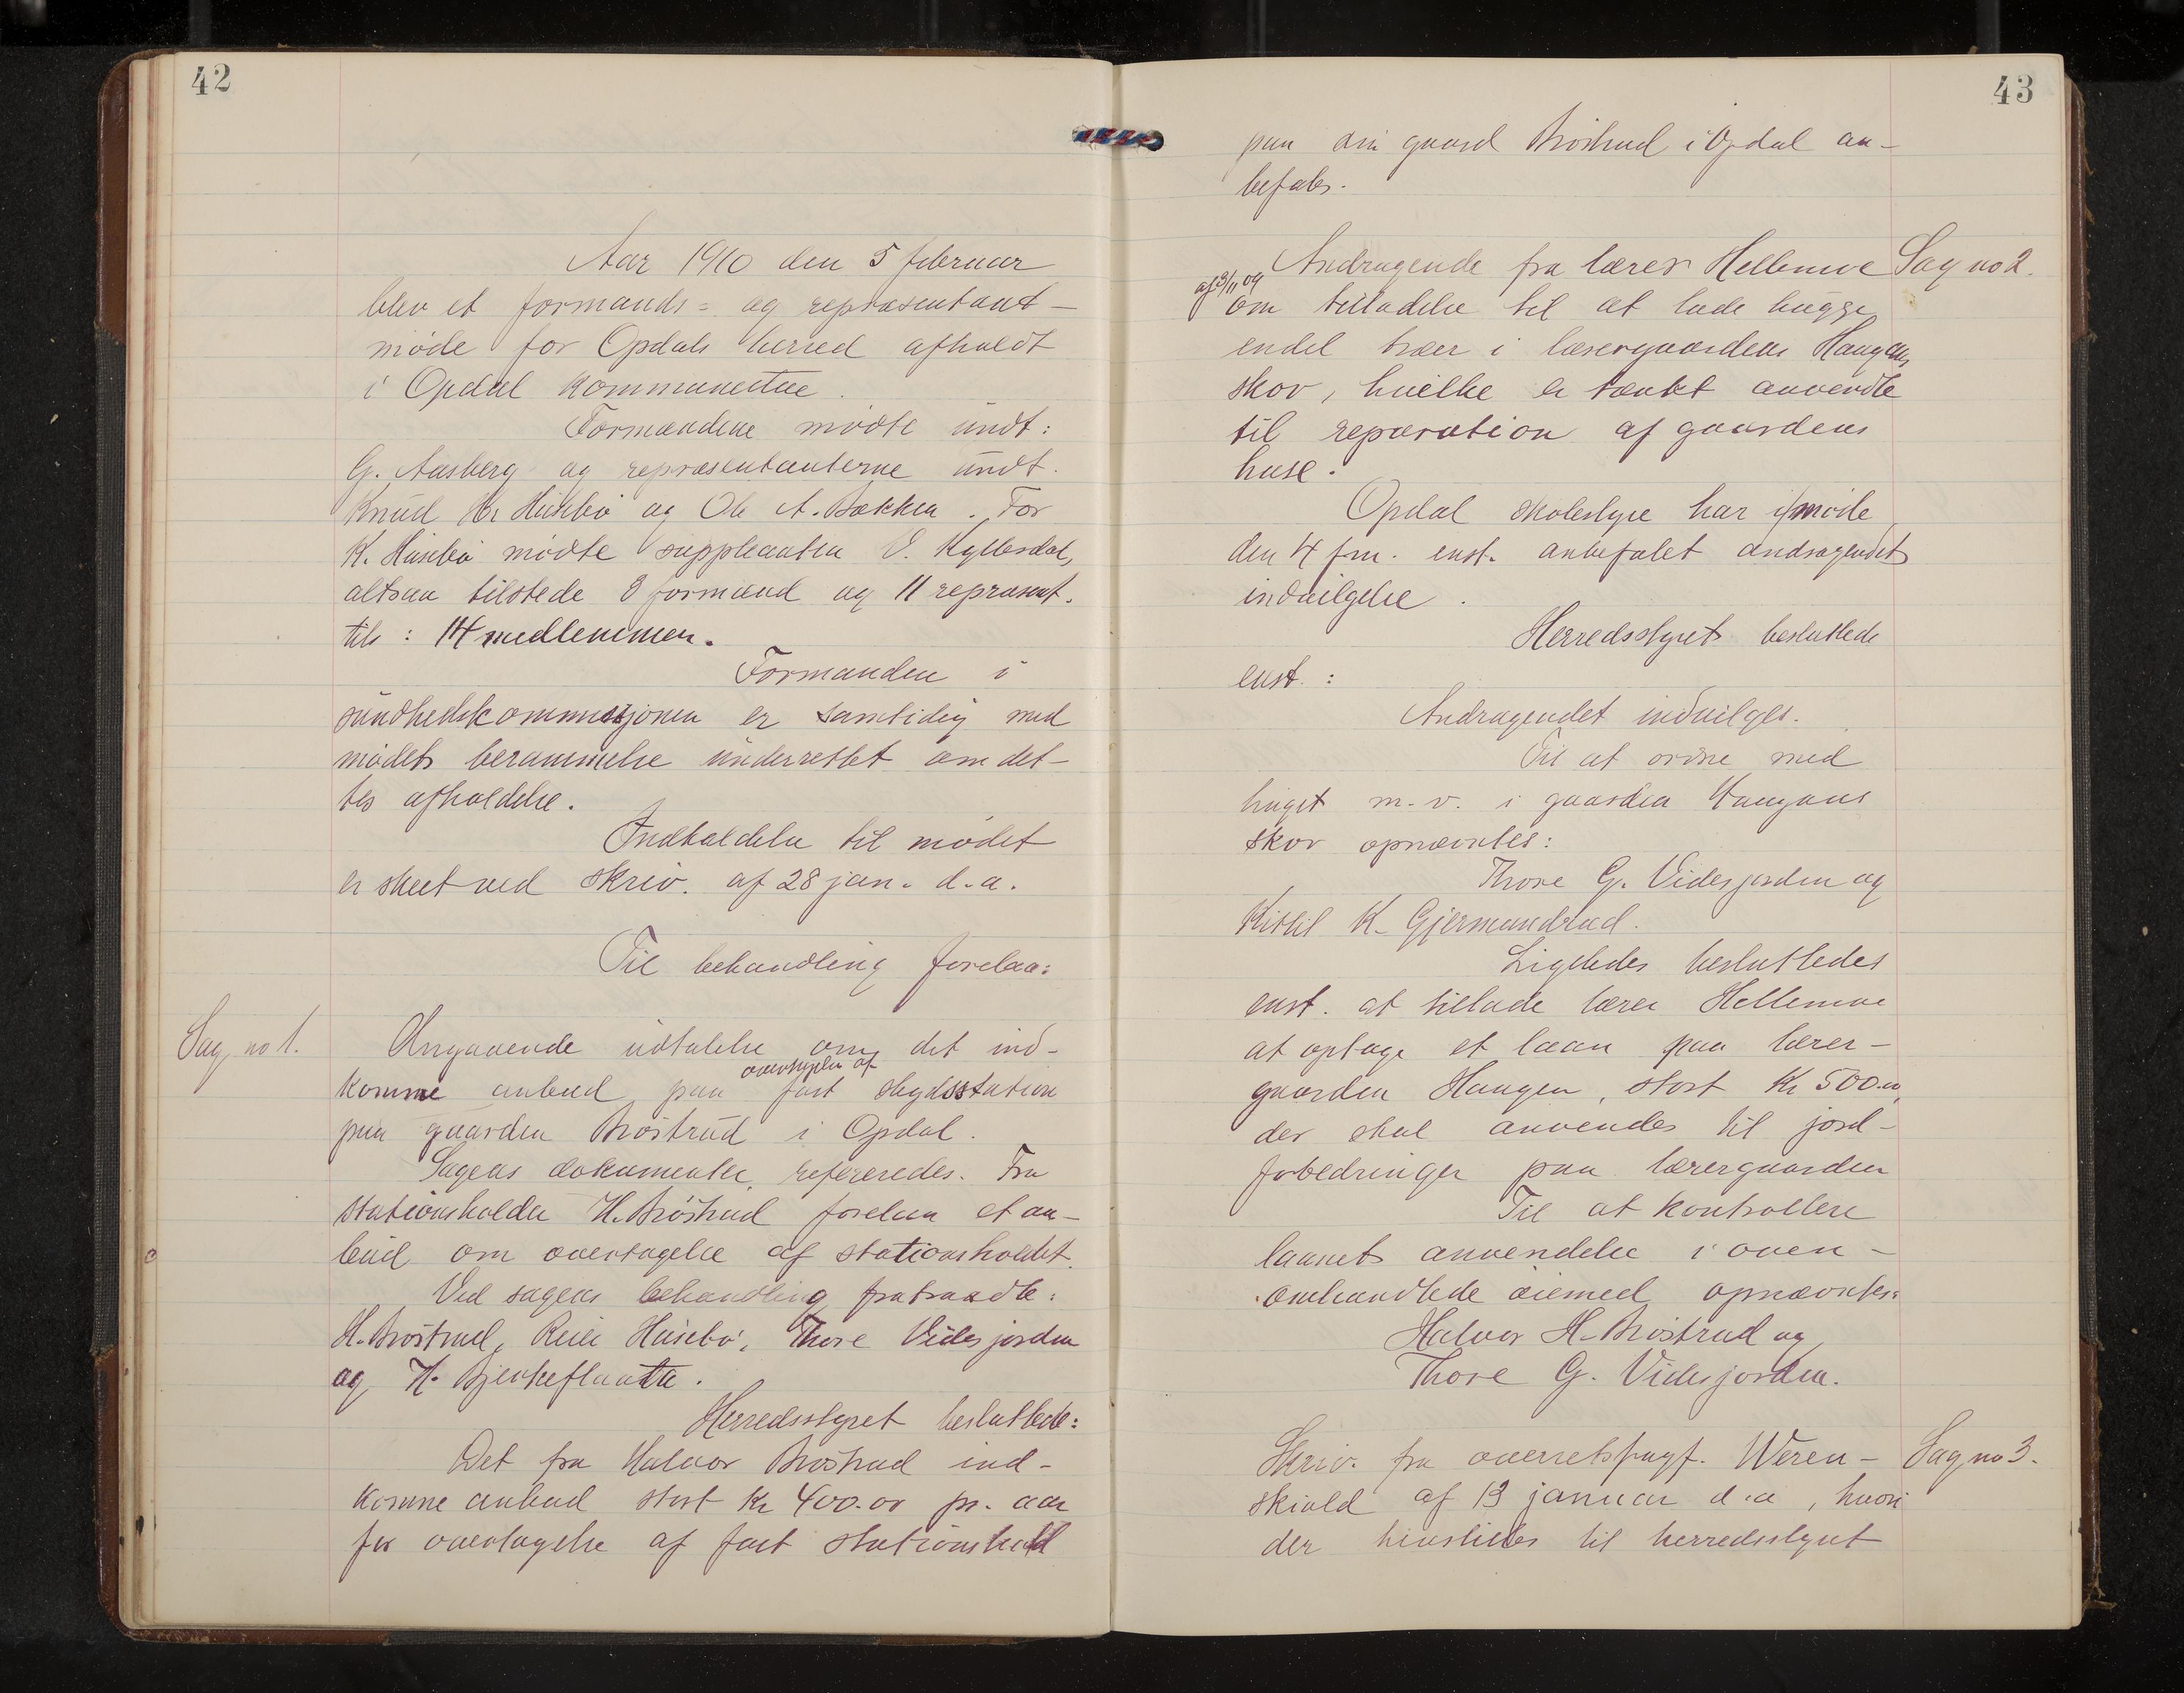 42
Aar 1910 den 5 februar
blev et formands- og repræsentant-
møde for Opdals herred afholdt
i Opdal kommunestue.
Formændene mødte undt:
G. Aasberg og repræsentanterne undt.
Knud Kr Husebø og Ole A. Bakken. For
K. Husebø mødte suppleanten O. Kyllesdal,
altsaa tilstede 3 formænd og 11 repræsent.
tils: 14 medlemmer.
Formanden i
sundhedskommisjonen er samtidig med
mødets berammelse underrettet om det-
tes afholdelse.
Indkaldelse til mødet
er skeet ved skriv. af 28 jan. d.a.
Til behandling forelaa:
Sag no 1.
Angaaende udtalelse om det ind-
komne anbud paa overtagelse af fast skydsstation
paa gaarden Brøstrud i Opdal.
Sagens dokumenter refereredes. Fra
stationsholder H. Brøstrud forelaa et an-
bud om overtagelse af stationsholdet.
Ved sagens behandling fratraadte:
H. Brøstrud, Husebø, Thore Videsjorden
og H. Bjerkeflaata.
Herredsstyret besluttede:
Det fra Halvor Brøstrud ind-
komne anbud stort Kr 400.00 pr. aar
for overtagelse af fast stationshold
43
paa sin gaard Brøstrud i Opdal an-
befales.
Sag no 2.
Andragende fra lærer Hellemoe
af 3/11 09
om tilladelse til at lade hugge
endel trær i lærergaarden Haugens
skov, hvilke er tænkt anvendte
til reparation af gaardens
huse.
Opdal skolestyre har i møde
den 4 fm. enst. anbefalet andragendets
indvilgelse.
Herredsstyret besluttede
enst.:
Andragendet indvilges.
Til at ordne med
huget m.v. i gaarden Haugens
skov opnævntes:
Thore G. Videsjorden og
Kittil K. Gjermundrud.
Ligeledes besluttedes
enst. at tillade lærer Hellemoe
at optage et laan paa lærer-
gaarden Haugen, stort Kr 500.00,
der skal anvendes til jord-
forbedringer paa lærergaarden
Til at kontrollere
laanets anvendelse i oven-
omhandlede øiemed opnævntes:
Halvor H. Brøstrud og
Thore G. Videsjorden.
Sag no 3.
Skriv. fra overretssagf. Weren-
skiold af 13 januar d.a, hvori
der henstilles til herredsstyret